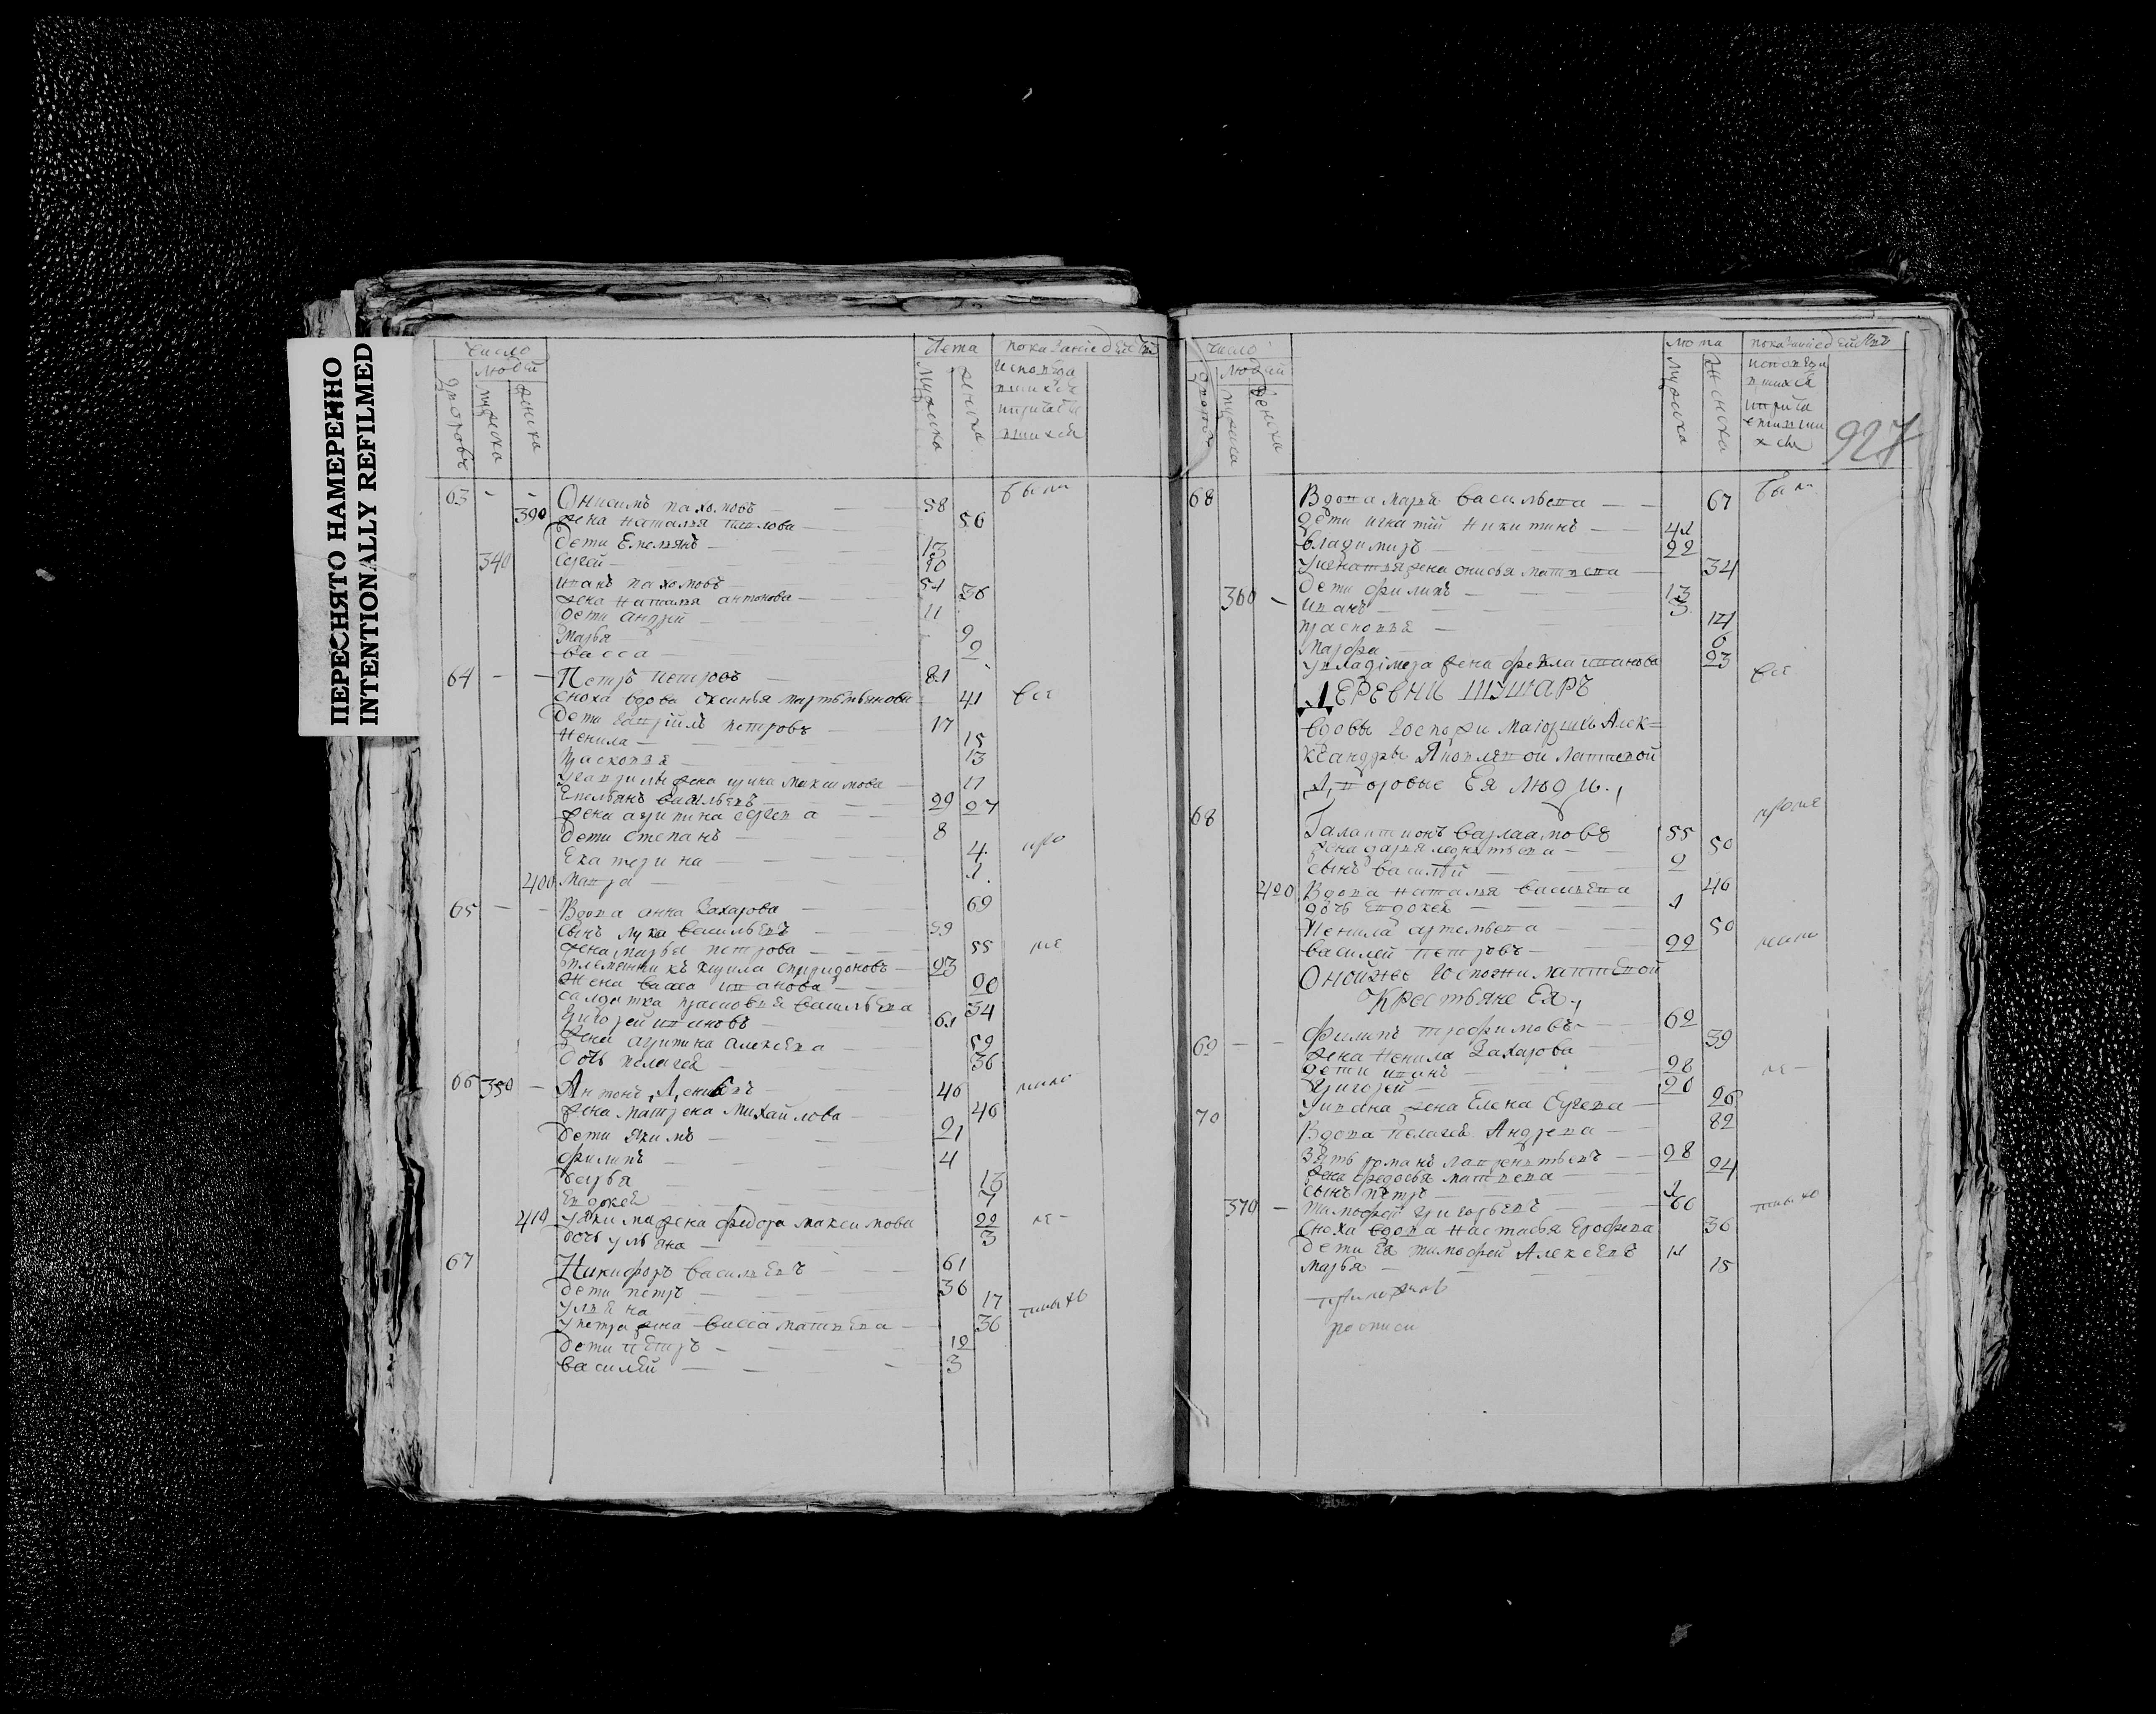 ПЕРЕСНЯТО НАМЕРЕННО
INTENTIONALLY REFILMED
число
людей
дворовъ
мужеска
женска
Лета
мужеска
женска
показание действа
исповеда
вшихся
63 - - Онисимъ пахомовъ 58 были
390 жена наталья титлова 56
Дети Емельянъ 13
340 Сергей 10
иванъ пахомовъ 51
жена наталья антонова 36
дети андрей 11
марья 9
васса 2
64 - - Петръ петровъ 81
сноха вдова оксинья мартемьянова 41 все
Дети гавриилъ петровъ 17
ненила 15
прасковья 13
угаврилы жена ирина максимова 17
Емельянъ васильевъ 29
жена акулина сергева 27
дети степанъ 8
Екатерина 4
400 мавра 1
65 - - Вдова анна захарова 69
сынъ лука васильевъ 59
жена марья петрова 55
племянникъ кирила спиридоновъ 23
Жена васса иванова 20
салдатка прасковья васильева 34
григорей ивановъ 61
жена акулина алексева 59
дочь пелагея 36
66 350 - Антонъ Денисовъ 46
жена матрена михайлова 40
дети якимъ 21
филипъ 4
дарья 13
Евдокея 7
410 уякима жена федора максимова 22
дочь ульяна 3
67 Никифоръ васильевъ 61
дети петръ 36
ульяна 17
упетра жена васса матвева 36
дети петръ 12
василей 3
число
людей
дворовъ
мужеска
женска
лета
мужеска
женска
показание действъ
927
68 Вдова марья васильева 67 были
дети игнатий никитинъ 41
владимиръ 22
уигнатья жена онисья матвева 34
360 - дети филипъ 13
иванъ 3
прасковья 14
марфа 6
увладимера жена фекла иванова 23
все
ДЕРЕВНИ ШУШАРЪ
вдовы госпожи маиорши Алек=
ксандры Яковлевои Лаптевой
Дворовые Ея люди
68 Галактионъ варлаамовъ 55
жена дарья леонтьева 50
сынъ василей 2
420 Вдова наталья васильева 46
дочь Евдокея 1
Ненила артемьева 50
василей петровъ 22
Онойже госпожи Лаптевой
Крестьяне Ея
69 - - филипъ трофимовъ 62
жена ненила захарова 39
дети иванъ 28
григорей 20
уивана жена Елена Сергева 26
70 Вдова пелагея Андрева 82
зять романъ лаврентьевъ 28
жена федосья матвева 24
сынъ петръ 1
370 - тимофей григорьевъ 60
сноха вдова настасья Ерофева 36
дети Ея тимофей Алексеевъ 11
марья 15
росписи